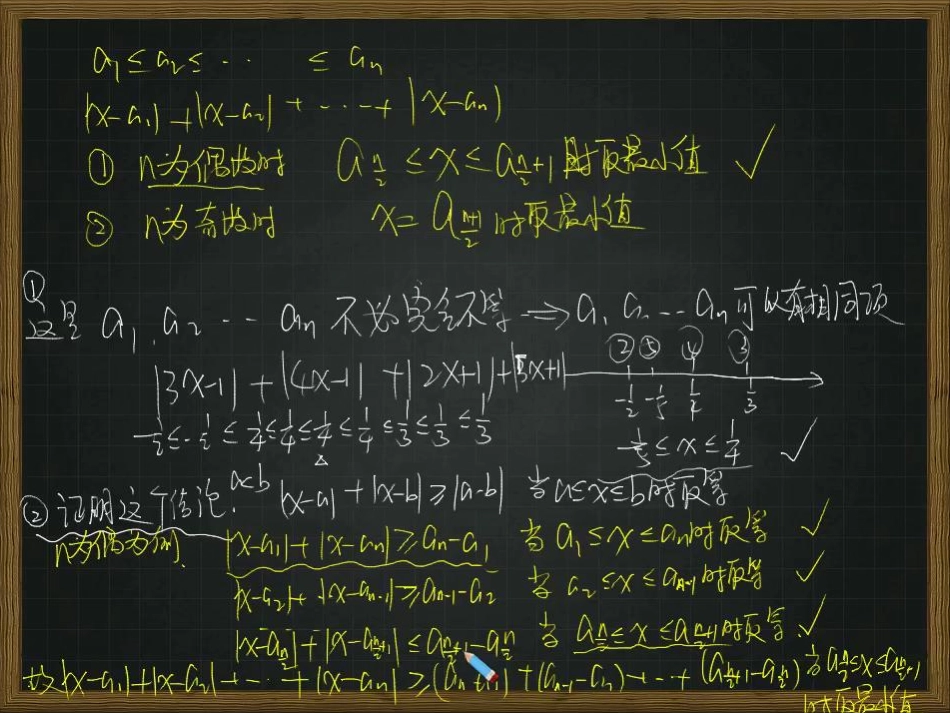 a₁ ≤ a₂ ≤ ⋯ ≤ aₙ
|x-a₁|+|x-a₂|+⋯+|x-aₙ|
① n为偶数时 a_{n/2} ≤ x ≤ a_{n/2+1} 时取最小值 ✓
② n为奇数时 x = a_{(n+1)/2} 时取最小值
① 这里 a₁, a₂ ⋯ aₙ 不必完全不等 ⇒ a₁ a₂ ⋯ aₙ 可以有相同项
② ⑤ ④ ③
|3x-1|+|4x-1|+|2x+1|+|5x+1|
-1/2 -1/5 1/4 1/3
-1/2 ≤ -1/2 ≤ 1/4 ≤ 1/4 ≤ 1/4 ≤ 1/4 ≤ 1/3 ≤ 1/3 ≤ 1/3
-1/5 ≤ x ≤ 1/4 ✓
② 证明这个结论. a<b |x-a|+|x-b| ≥ |a-b| 当 a≤x≤b 时取等
n为偶为例. |x-a₁|+|x-aₙ| ≥ aₙ-a₁ 当 a₁ ≤ x ≤ aₙ 时取等 ✓
|x-a₂|+|x-aₙ₋₁| ≥ aₙ₋₁-a₂ 当 a₂ ≤ x ≤ aₙ₋₁ 时取等 ✓
|x-a_{n/2}|+|x-a_{n/2+1}| ≤ a_{n/2+1}-a_{n/2} 当 a_{n/2} ≤ x ≤ a_{n/2+1} 时取等. ✓
故|x-a₁|+|x-a₂|+⋯+|x-aₙ| ≥ (aₙ-a₁)+(aₙ₋₁-a₂)+⋯+(a_{n/2+1}-a_{n/2}) 当 a_{n/2}≤x≤a_{n/2+1}
时取最小值